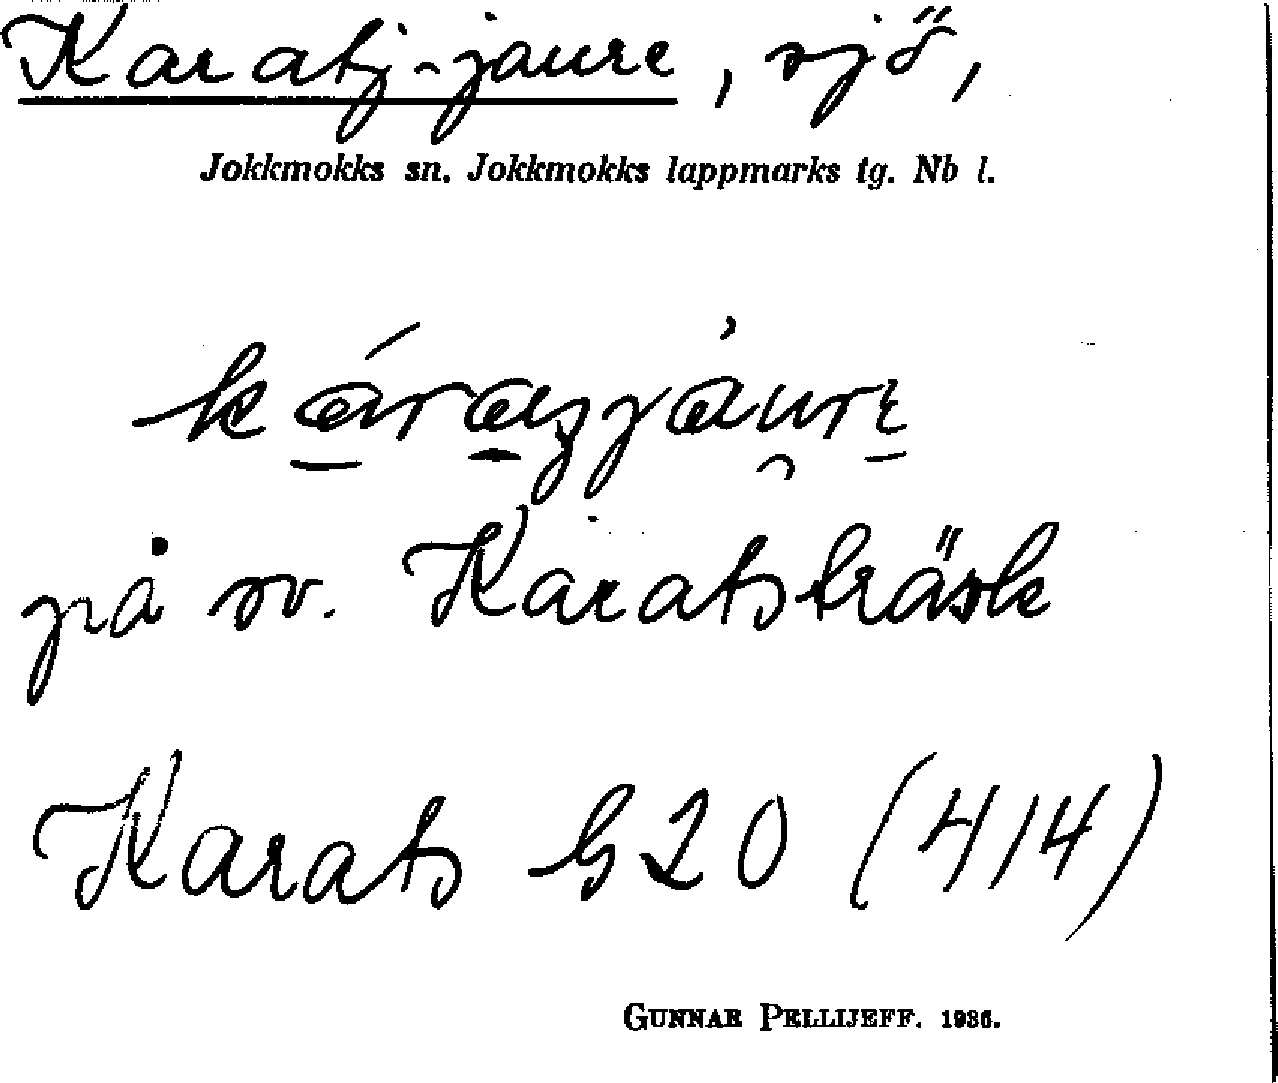 Karatj-jaure, sjö,
Jokkmokks sn. Jokkmokks lappmarks tg. Nb l.
på sv. Karatsträsk
Karats S20 (414)
GUNNAR PELLIJEFF. 1936.